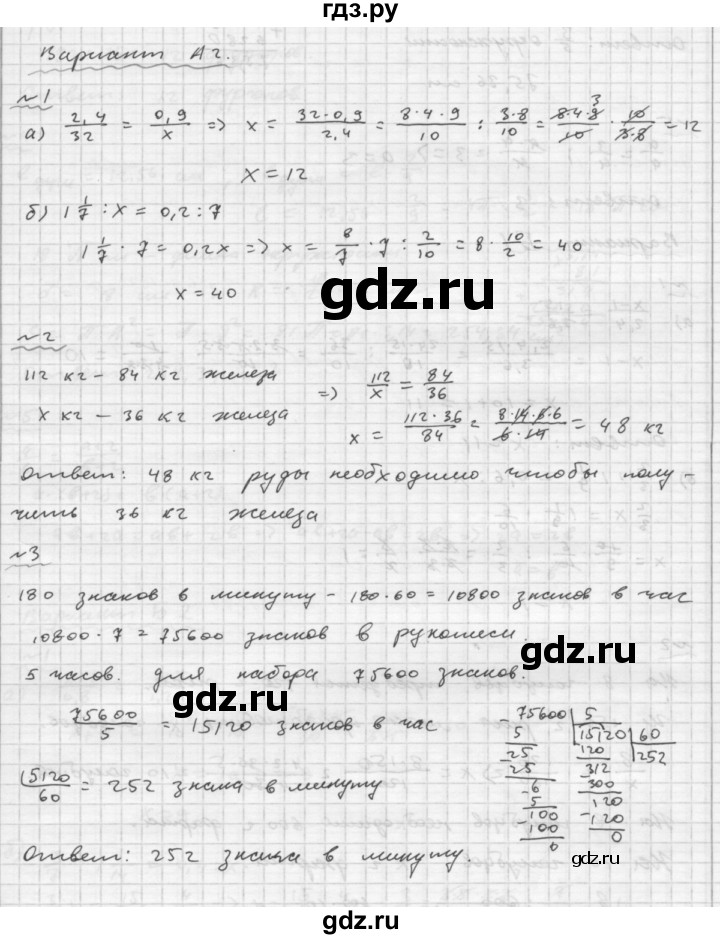 гдз.ру
Вариант А2.
№1
а) 2,4/32 = 0,9/x => x = 32·0,9/2,4 = 8·4·9/10 : 3·8/10 = 8·4·9/10 · 10/3·8 = 12
3
x = 12
б) 1 1/7 : x = 0,2 : 7
1 1/7 · 7 = 0,2x => x = 8/7 · 7 : 2/10 = 8 · 10/2 = 40
x = 40
gdz.ru
№2
112 кг – 84 кг железа
x кг – 36 кг железа
=> 112/x = 84/36
x = 112·36/84 = 8·14·6·6/6·14 = 48 кг
Ответ: 48 кг руды необходимо чтобы полу-
чить 36 кг железа
№3
180 знаков в минуту – 180·60 = 10800 знаков в час
10800·7 = 75600 знаков в рукописи.
5 часов. для набора 75600 знаков.
gdz.ru
75600/5 = 15120 знаков в час
15120/60 = 252 знака в минуту
75600 5
5 15120 60
25 120 252
25 312
6 300
5 120
100 120
100 0
0
Ответ: 252 знака в минуту.
gdz.ru
gdz.ru